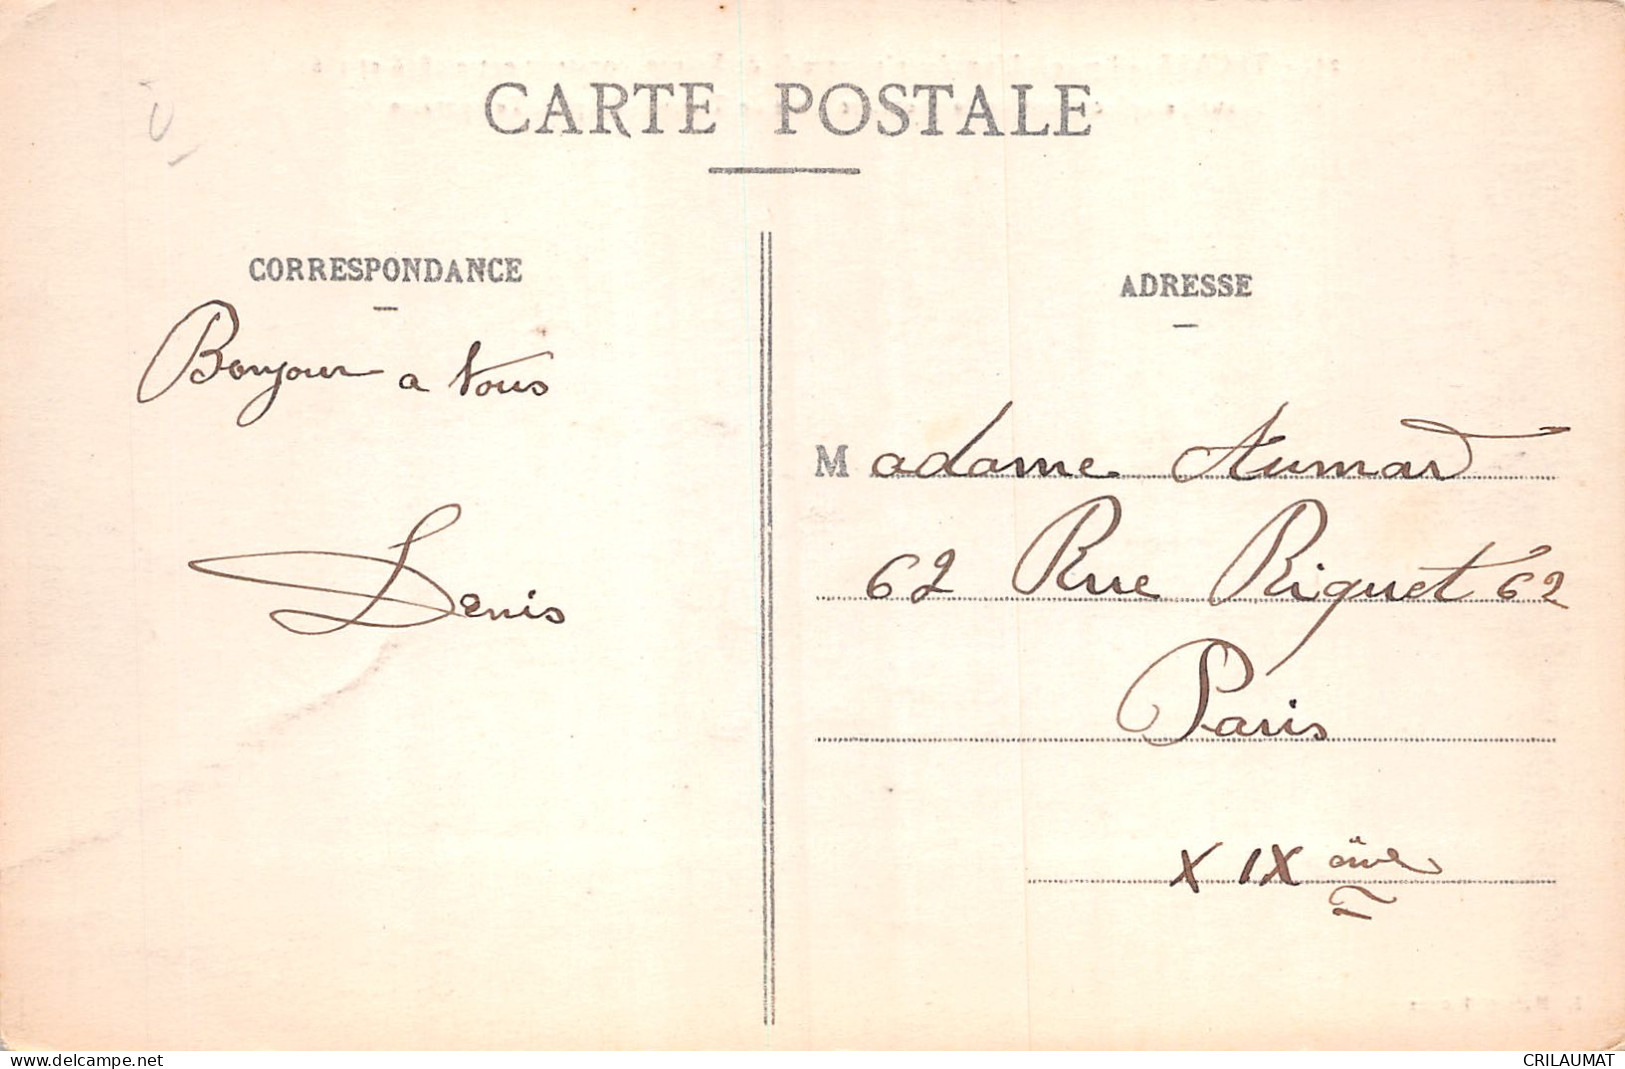 CARTE POSTALE
CORRESPONDANCE
Bonjour a Vous
Denis
ADRESSE
Madame Aumard
62 Rue Riquet 62
Paris
XIX ème
www.delcampe.net
CRILAUMAT